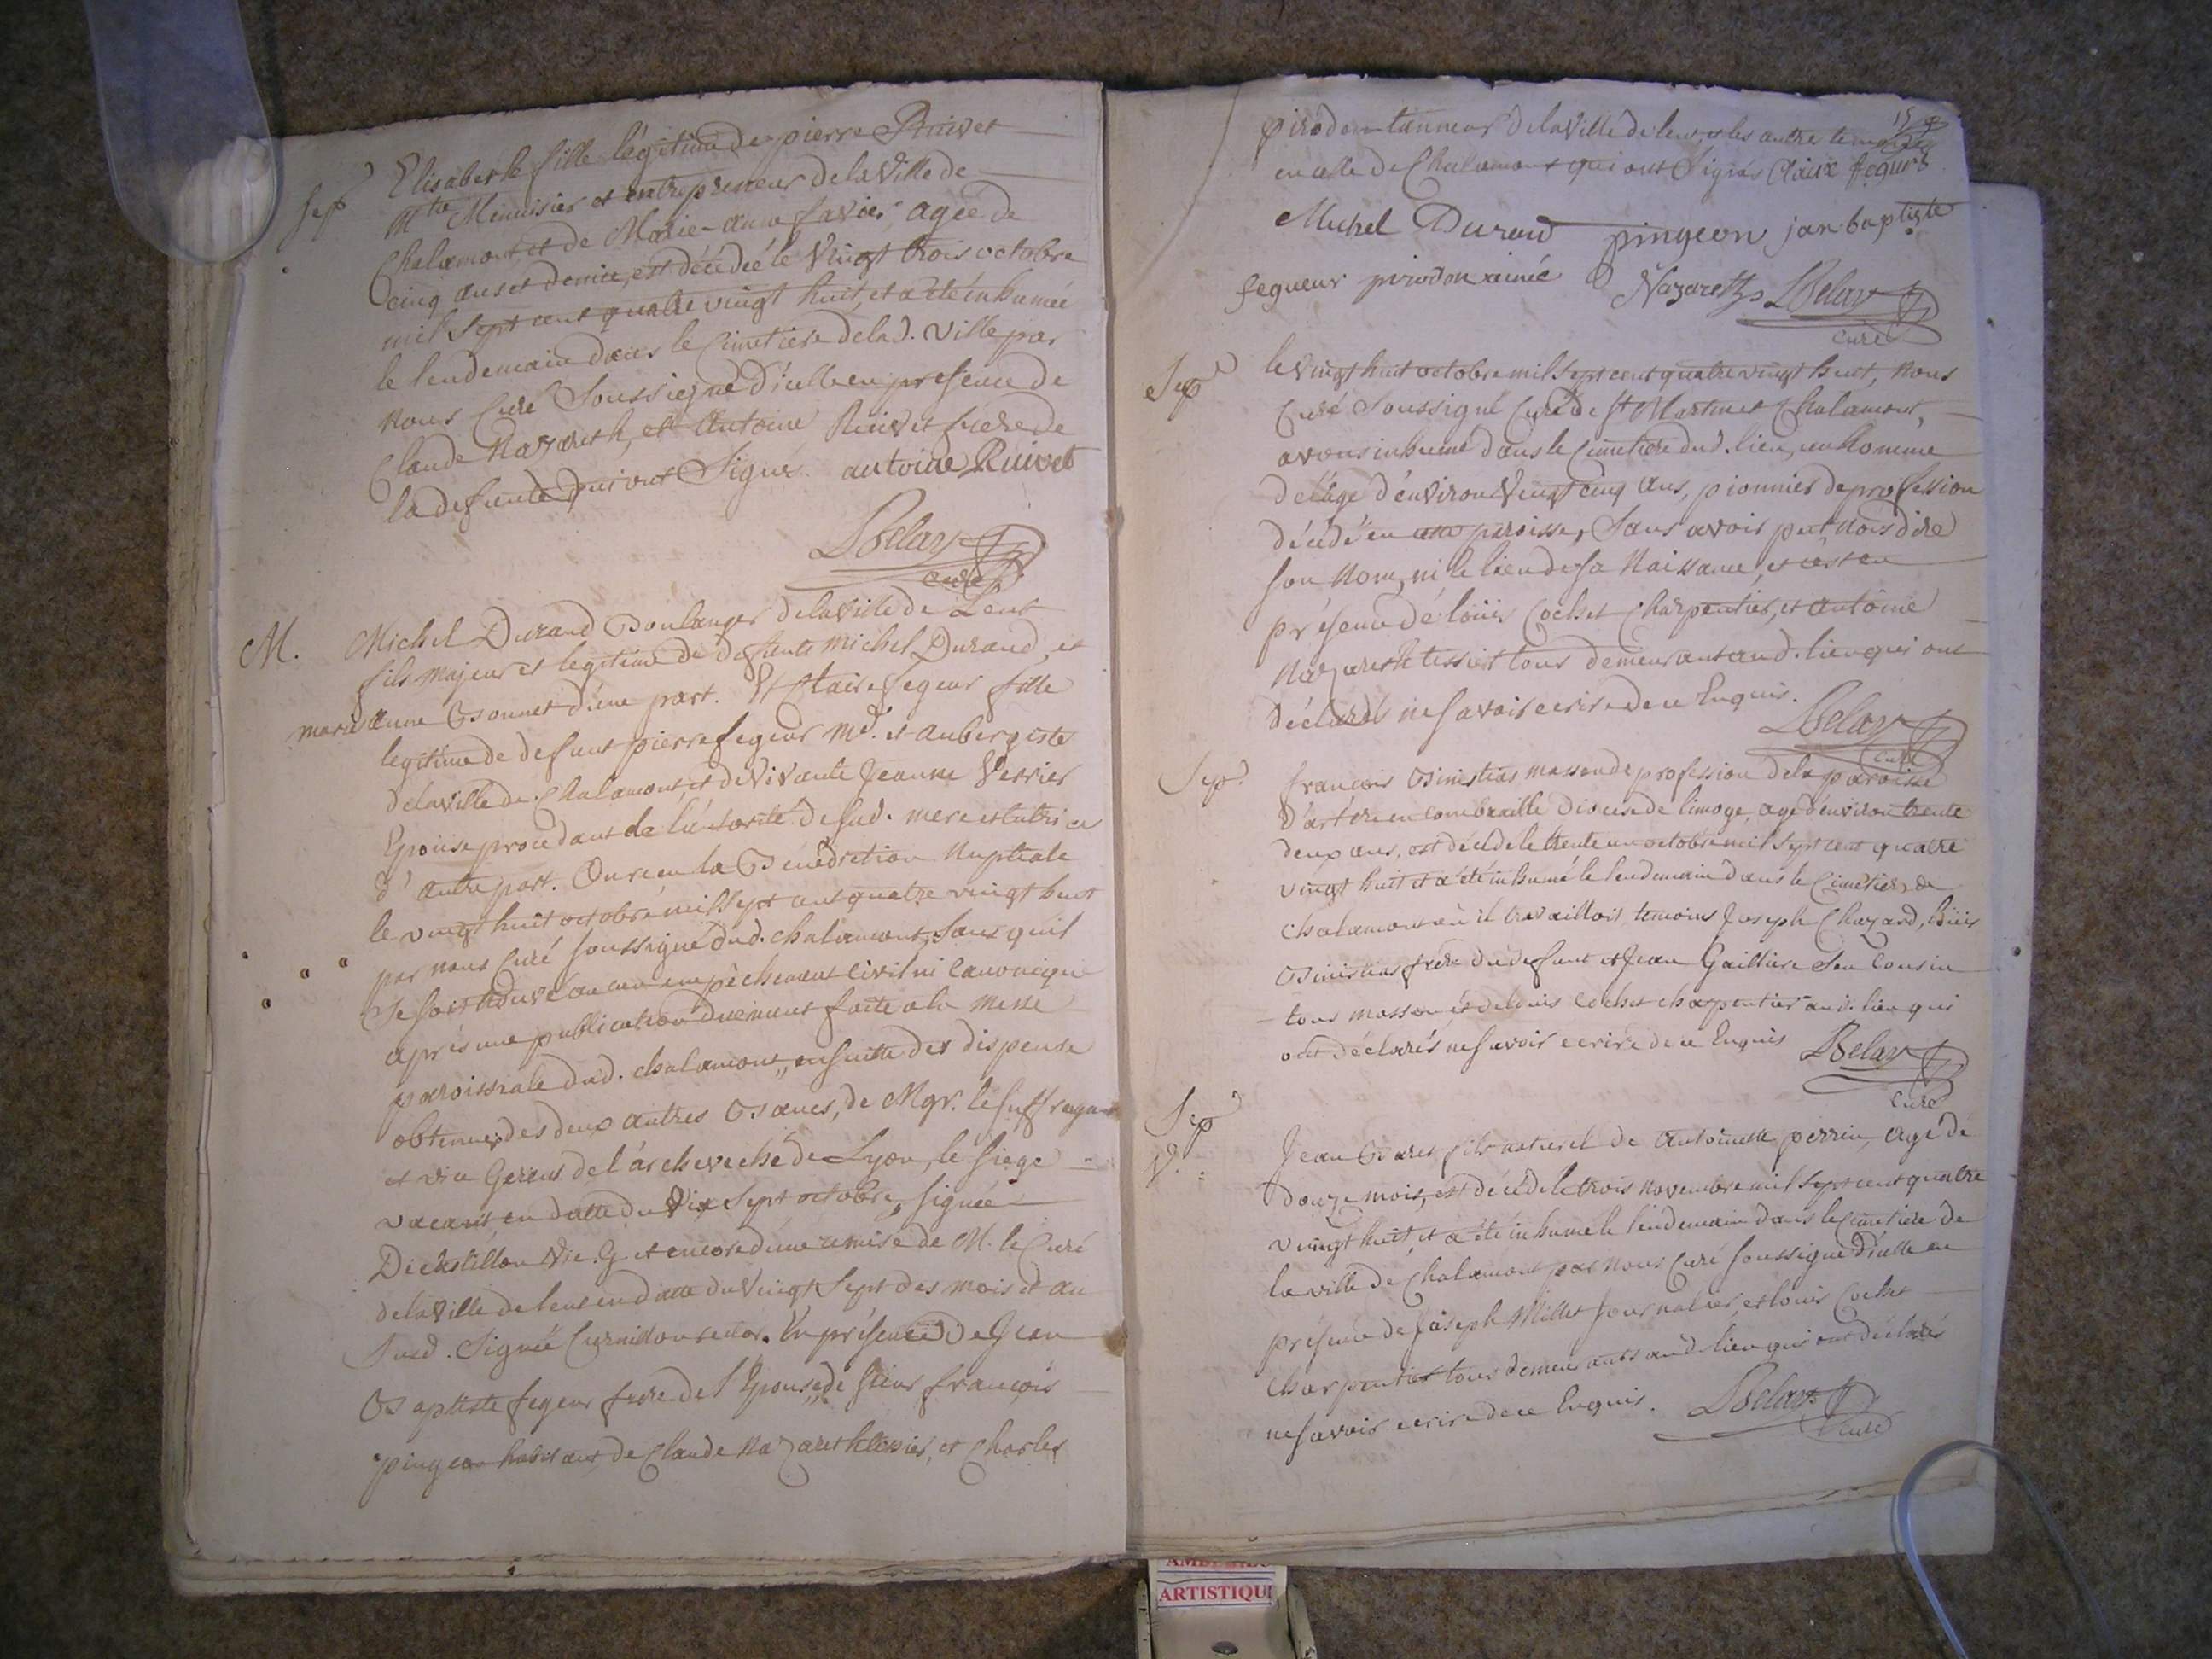 Sep.
Elisabeth fille légitime de pierre Ruivet
Mtre Menuisier et entrepreneur de la Ville de
Chalamont et de Marie-anne favier, agée de
cinq ans et demie, est décédée le vingt trois octobre
mil sept cent quatre vingt huit, et a été inhumée
le lendemain dans le Cimetiere de lad. ville par
nous Curé Soussigné d'icelle en presence de
Claude Nazareth, et Antoine Ruivet frere de
la defunte qui ont Signé. antoine Ruivet
LBelay
curé
M.
Michel Durand Boulanger de la ville de Lent
fils majeur et legitime de defunts Michel Durand, et
marie anne Bonnet d'une part. Et Claire fegeur fille
legitime de defunt pierre fegeur Md. et aubergiste
de la ville de Chalamont, et de Vivante Jeanne Verrier
Epouse procedant de l'autorité de sad. mere et tutrice
d'autre part. Ont reçu la Bénédiction Nuptiale
le vingt huit octobre mil sept cent quatre vingt huit
par nous Curé soussigné dud. chalamont, sans qu'il
se soit trouvé aucun empêchement civil ni canonique
après une publication duement faite a la messe
paroissiale dud. chalamont, ensuitte des dispense
obtenues des deux autres Bancs, de Mgr. le suffragant
et vice Gerent de l'archeveché de Lyon, le siege
vacant en datte du dix sept octobre, signée
Dechatillon Vic. G. et encore d'une remise de M. le Curé
de la Ville de lent en datte du vingt sept des mois et an
Susd. Signée Curnidon recteur. En présence de Jean
Baptiste fegeur frere de l'Epouse, de sieur françois
pingeon habitant, de Claude Nazareth tessier, et Charles
15
pirodon tanneur de la Ville de lent, et les autres temoins
en celle de Chalamont qui ont Signés Claire fegeur
Michel Durand pingeon jan baptiste
fegueur pirodon ainé Nazareth LBelay
curé
Sep
le vingt huit octobre mil sept cent quatre vingt huit, Nous
Curé Soussigné Curé de St Martin et Chalamont,
avons inhumé dans le Cimetiere dud. lieu, un homme
de l'age d'environ vingt cinq ans, pionnier de profession
décédé en cette paroisse, Sans avoir peut nous dire
son Nom, ni le lieu de sa Naissance, et c'est en
présence de loüis Cochet Charpentier, et antoine
Nazareth tessier tous demeurant aud. lieu qui ont
déclarés ne savoir ecrire de ce Enquis.
LBelay
curé
Sep.
françois masson de profession de la paroisse
en combraille Diocese de limoge, agé d'environ trente
deux ans, est décédé le trente un octobre mil sept cent quatre
vingt huit et a été inhumé le lendemain dans le Cimetiere de
chalamont où il travailloit, temoins Joseph Chazard, loüis
frere du defunt et Jean Gailliere Son Cousin
tous masson, et de loüis Cochet charpentier aud. lieu qui
ont déclarés ne savoir ecrire de ce Enquis LBelay
curé
Sep
Jean fils naturel de antoinette perrin, agé de
douze mois, est décédé le trois novembre mil sept cent quatre
vingt huit, et a été inhumé le lendemain dans le Cimetiere de
la ville de Chalamont par nous Curé soussigné d'icelle en
présence de Joseph Millet journalier, et louis Cochet
Charpentier tous demeurants aud. lieu qui ont déclarés
ne savoir ecrire de ce Enquis. LBelay
curé
ARTISTIQU